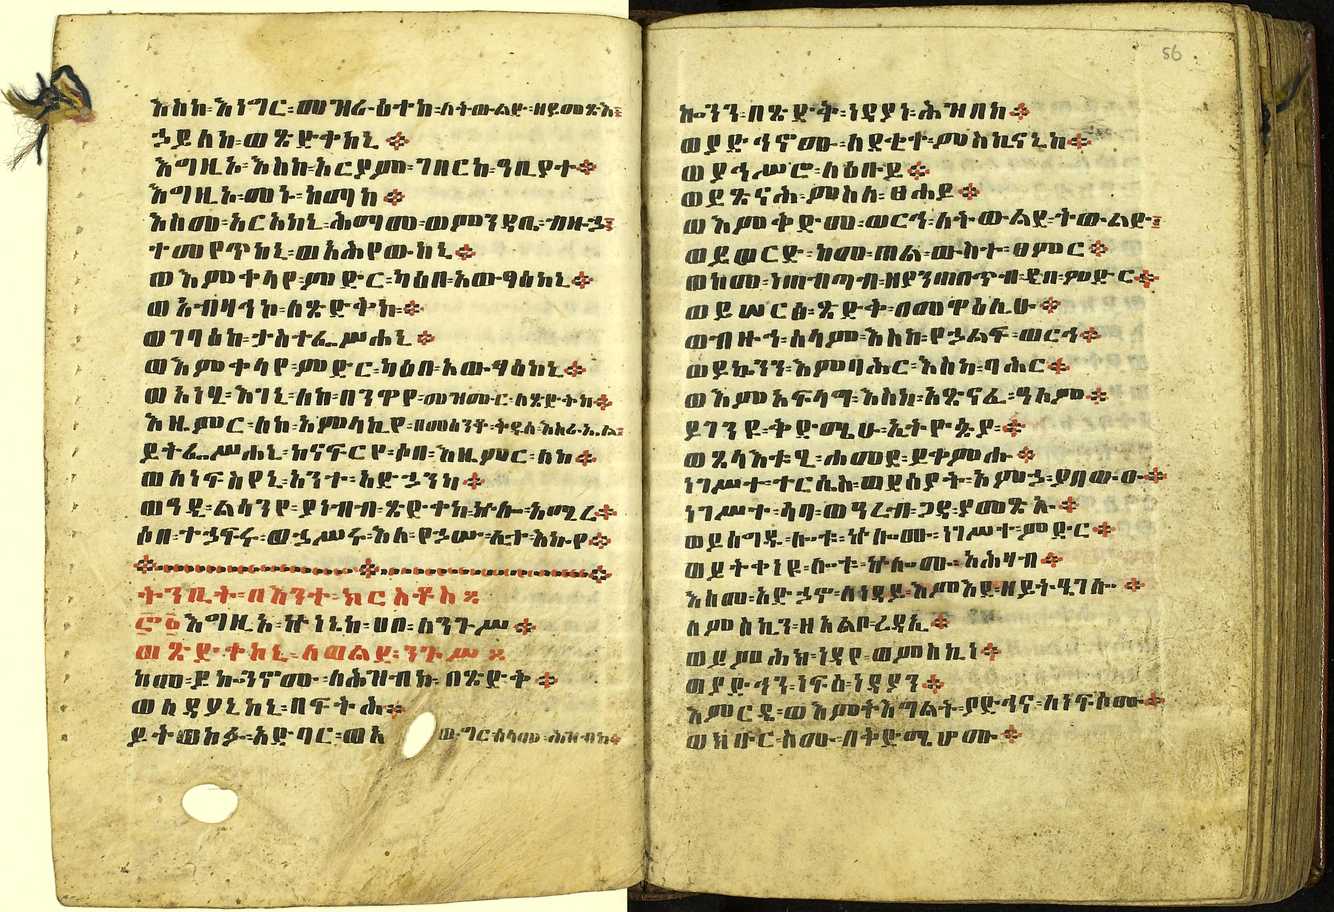 እስከ፡እነግር፡መዝራዕተከ፡ለትውልድ፡ዘይመጽእ፤
ኃይለከ፡ወጽድቀከኒ ።
እግዚኦ፡እስከ፡አርያም፡ገበርከ፡ዓቢያተ።
እግዚኦ፡መኑ፡ከማከ።
እስመ፡አርአከኒ፡ሕማመ፡ወምንዳቤ፡ብዙኃ፤
ተመየጥከኒ፡ወአሕየውከኒ።
ወእምቀላየ፡ምድር፡ካዕበ፡አውፃዕከኒ።
ወአብዛኅኮ፡ለጽድቅከ።
ወገባዕከ፡ታስተፌሥሐኒ።
ወእምቀላየ፡ምድር፡ካዕበ፡አውፃዕከኒ።
ወአነሂ፡እገኒ፡ለከ፡በንዋየ፡መዝሙር፡ለጽድቅከ።
እዜምር፡ለከ፡አምላኪየ፡በመሰንቆ፡ቅዱሰ፡እስራኤል፤
ይትፌሥሐኒ፡ከናፍርየ፡ሶበ፡እዜምር፡ለከ።
ወለነፍስየኒ፡አንተ፡አድኃንካ።
ወዓዲ፡ልሳንየ፡ያነብብ፡ጽድቀከ፡ኵሎ፡አሚረ።
ሶበ፡ተኃፍሩ፡ወኃሥሩ፡እለ፡የኃሡ፡ሊተ፡እኩየ።
ትንቢት፡በእንተ፡ክርስቶስ።
፸፩ እግዚኦ፡ኵነኔከ፡ሀቦ፡ለንጉሥ።
ወጽድቀከኒ፡ለወልደ፡ንጉሥ።
ከመ፡ይኰንኖሙ፡ለሕዝብከ፡በጽድቅ።
ወለነዳያኒከኒ፡በፍትሕ።
ይትወከፉ፡አድባር፡ወአ ውግር፡ሰላመ፡ሕዝብከ።
56
ኰንን፡በጽድቅ፡ነዳያነ፡ሕዝብከ።
ወያድኅኖሙ፡ለደቂቀ፡ምስኪናኒከ።
ወያኅሥሮ፡ለዕቡይ።
ወይጸንሕ፡ምስለ፡ፀሐይ።
ወእምቅድመ፡ወርኅ፡ለትውልደ፡ትውልድ፤
ወይወርድ፡ከመ፡ጠል፡ውስተ፡ፀምር።
ወከመ፡ነጠብጣብ፡ዘያንጠበጥብ፡ዲበ፡ምድር።
ወይሠርፅ፡ጽድቅ፡በመዋዕሊሁ።
ወብዙኅ፡ሰላም፡እስከ፡የኃልፍ፡ወርኅ።
ወይኴንን፡እምባሕር፡እስከ፡ባሕር።
ወእምአፍላግ፡እስከ፡አጽናፈ፡ዓለም።
ይገንዩ፡ቅድሜሁ፡ኢትዮጵያ።
ወጸላእቱሂ፡ሐመደ፡ይቀምሑ።
ነገሥተ፡ተርሴስ፡ወደሰያት፡አምኃ፡ያበውዑ።
ነገሥተ፡ሳባ፡ወዓረብ፡ጋዳ፡ያመጽኡ።
ወይሰግዱ፡ሎቱ፡ኵሎሙ፡ነገሥተ፡ምድር።
ወይትቀነዩ፡ሎቱ፡ኵሎሙ፡አሕዛብ።
እስመ፡አድኃኖ፡ለነዳይ፡እምእደ፡ዘይትዔገሎ።
ለምስኪን፡ዘአልቦ፡ረዳኢ።
ወይምሕክ፡ነዳየ፡ወምስኪነ።
ወያድኅን፡ነፍሰ፡ነዳያን።
እምርዴ፡ወእምትእግልት፡ያድኅና፡ለነፍሶሙ።
ወክቡር፡ስሙ፡በቅድሜሆሙ።